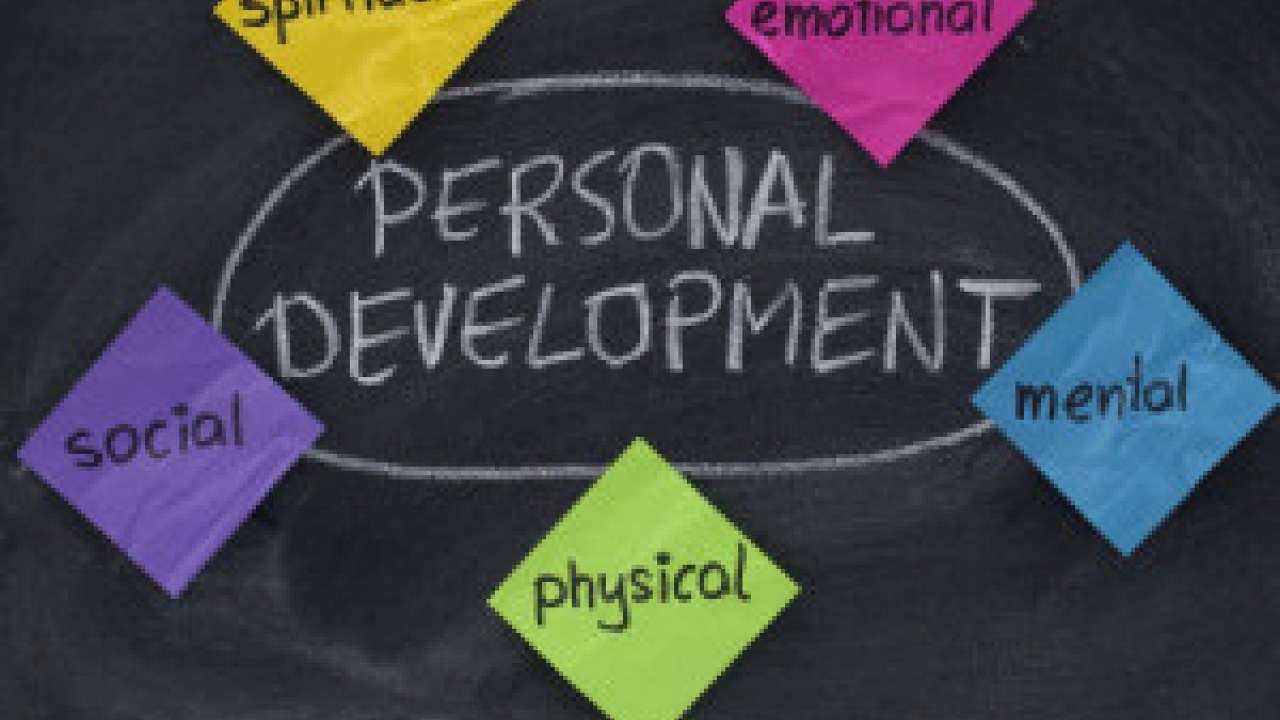 emotional
PERSONAL
DEVELOPMENT
social
mental
physical